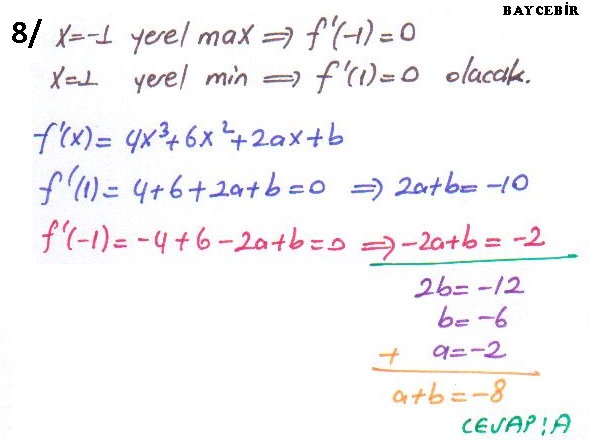 BAYCEBİR
8/ x=-1 yerel max ⇒ f'(-1)=0
x=1 yerel min ⇒ f'(1)=0 olacak.
f'(x)= 4x³+6x²+2ax+b
f'(1)= 4+6+2a+b=0 ⇒ 2a+b=-10
f'(-1)=-4+6-2a+b=0 ⇒ -2a+b=-2
2b=-12
b=-6
+ a=-2
a+b=-8
CEVAP:A